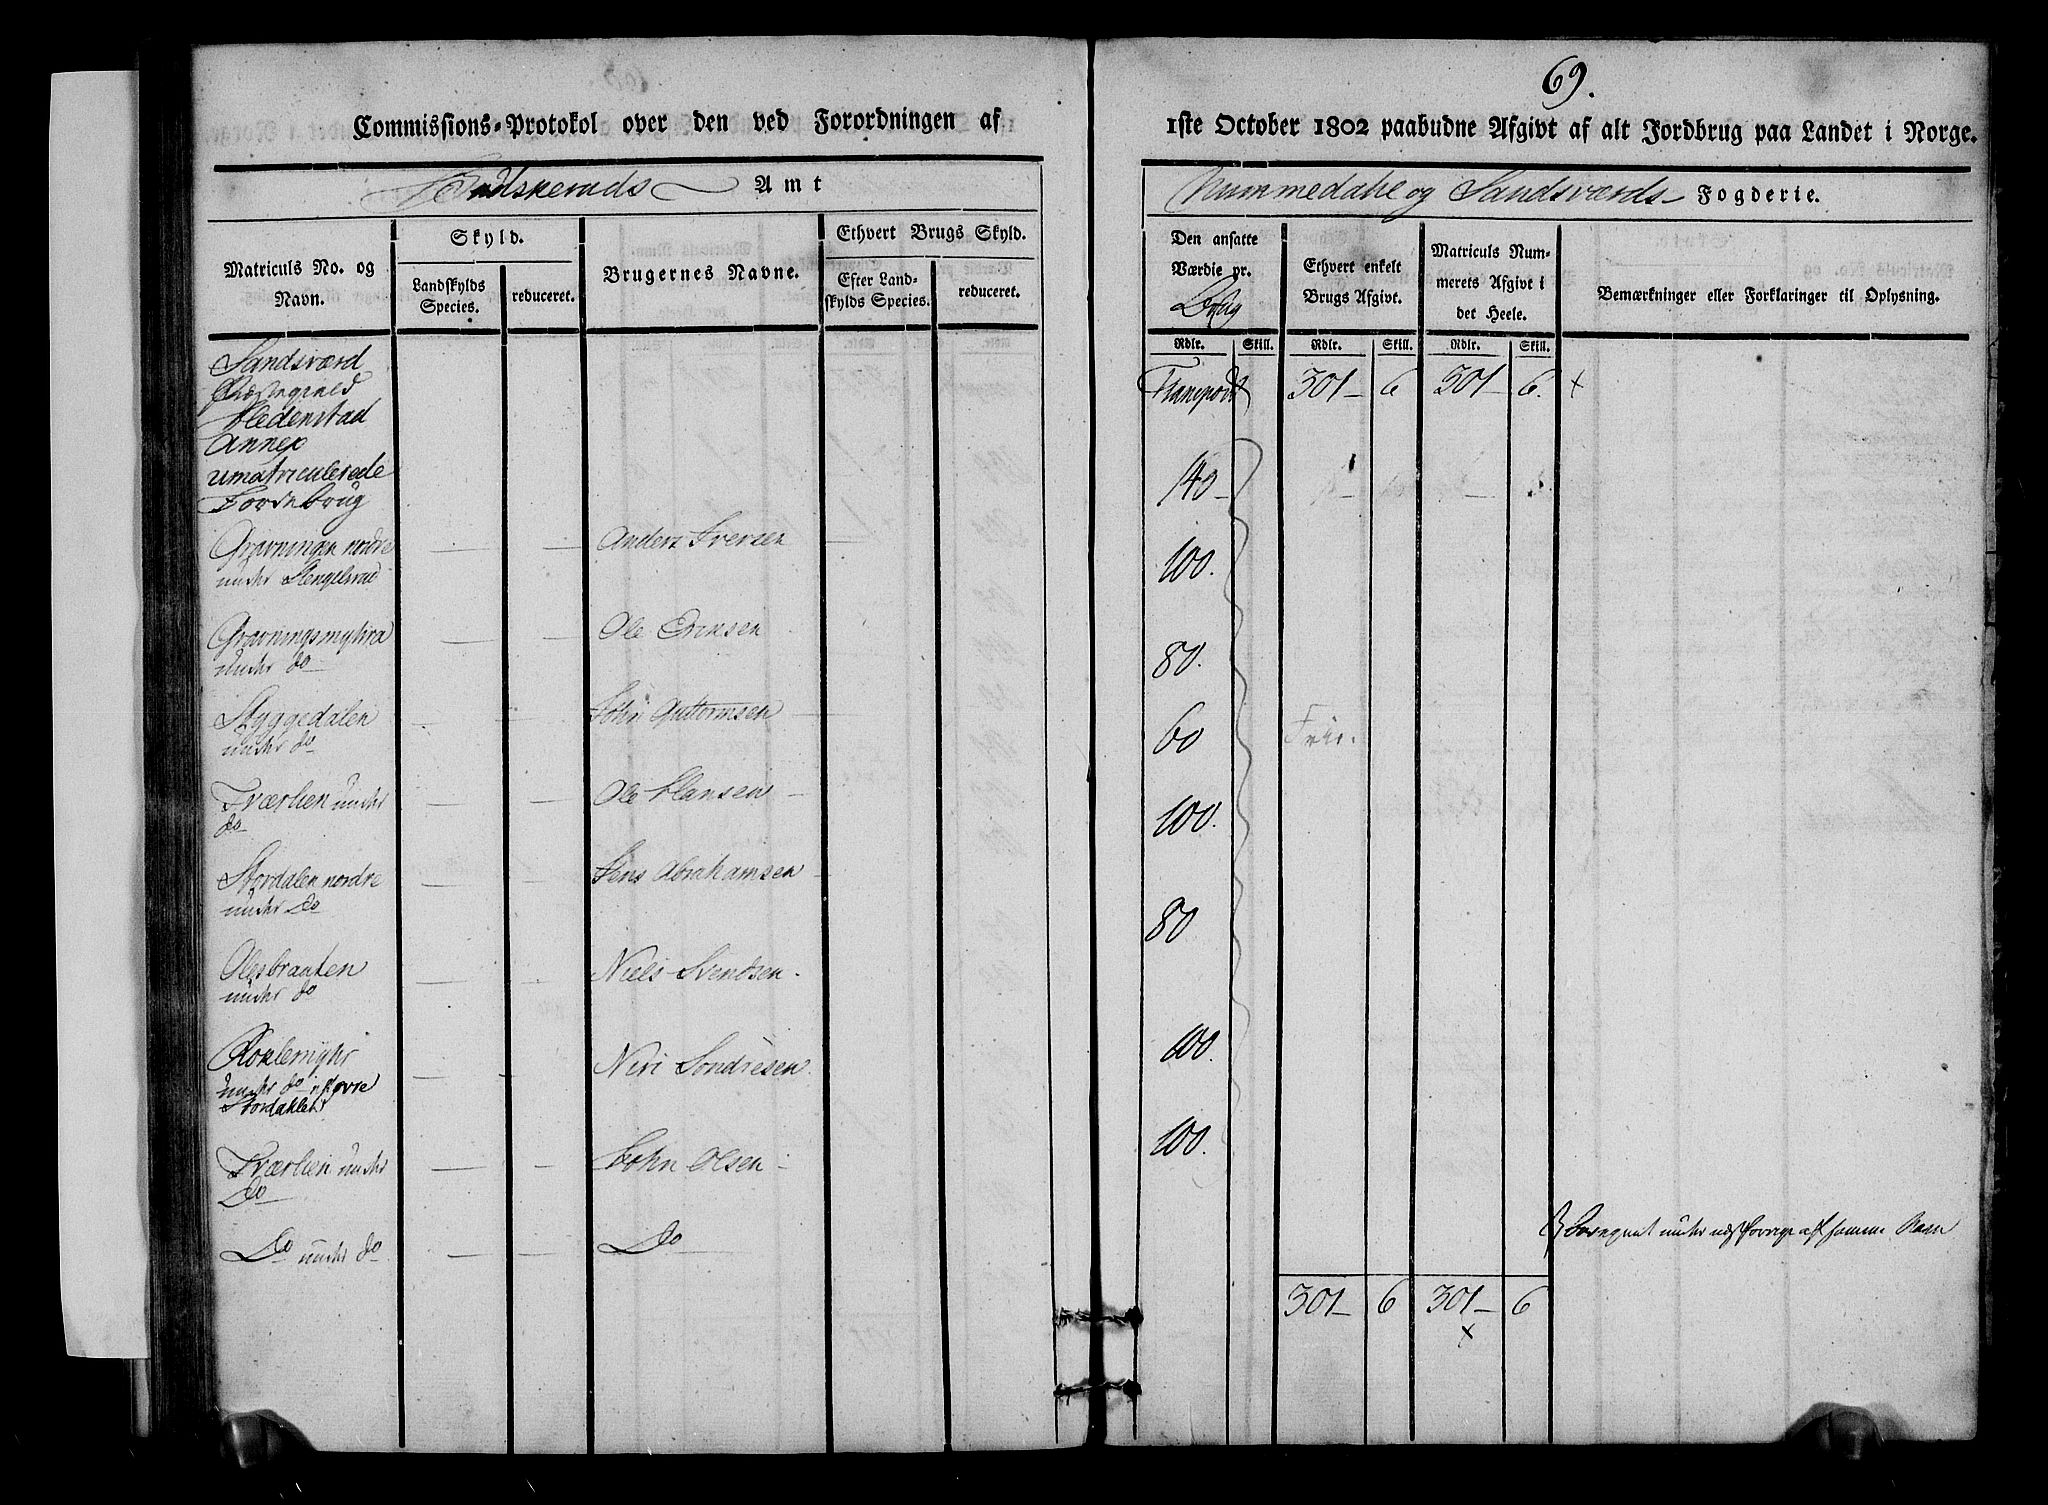 69.
Commissions-Protokol over den ved Forordningen af
1ste October 1802 paabudne Afgivt af alt Jordbrug paa Landet i Norge.
Budskeruds Amt
Nummedahl og Sandsværds Fogderie.
Matriculs No. og Navn.
Skyld.
Landskylds Species.
reduceret.
Brugernes Navne.
Ethvert Brugs Skyld.
Efter Landskylds Species.
reduceret.
Den ansatte Værdie pr. Brug
Ethvert enkelt Brugs Afgivt.
Matriculs Nummerets Afgivt i det Heele.
Bemærkninger eller Forklaringer til Oplysning.
Rdlr. Skill. Rdlr. Skill. Rdlr. Skill.
Sandsværd
Præstegield
Hedenstad
Annex
umatriculerede
Jordebrug
Transport 301 - 6 301 - 6. x
140 -
Gravningen nordre
under Stengelsrud
Anders Iversen
100.
Gravningsmyhra
under do
Ole Ericksen
80.
Styggedalen
under do
John Guttormsen
60
Frie.
Tværlien under
do
Ole Hansen
100.
Stordalen nordre
under Do
Jens Abrahamsen
80
Olesbraaten
under do
Niels Svendsen
100.
under do
øvre
Niri Sondresen
100.
Tværlien under
Do
John Olsen
Do under do
Do
under af samme
301 - 6 301 - 6
x